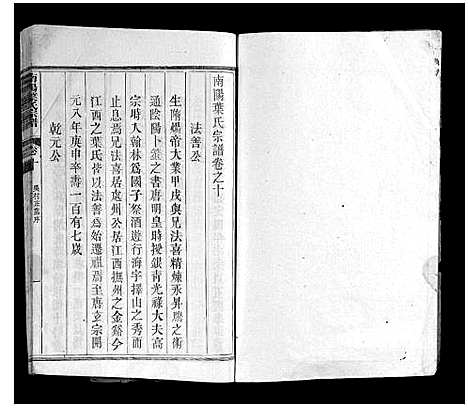 南陽葉氏宗譜卷之十
法善公
生隋煬帝大業甲戌與兄法喜精煉汞昇騰之術
通陰陽卜筮之書唐明皇時授銀青光祿大夫高
宗時人翰林為國子祭酒遊行海宇擇山之秀而
止息焉兄法喜居處州公居江西撫州之金谿今
江西之葉氏俱以法善為始遷祖焉至唐玄宗開
元八年庚申卒壽一百有七歲
乾元公
南陽葉氏宗譜
卷十